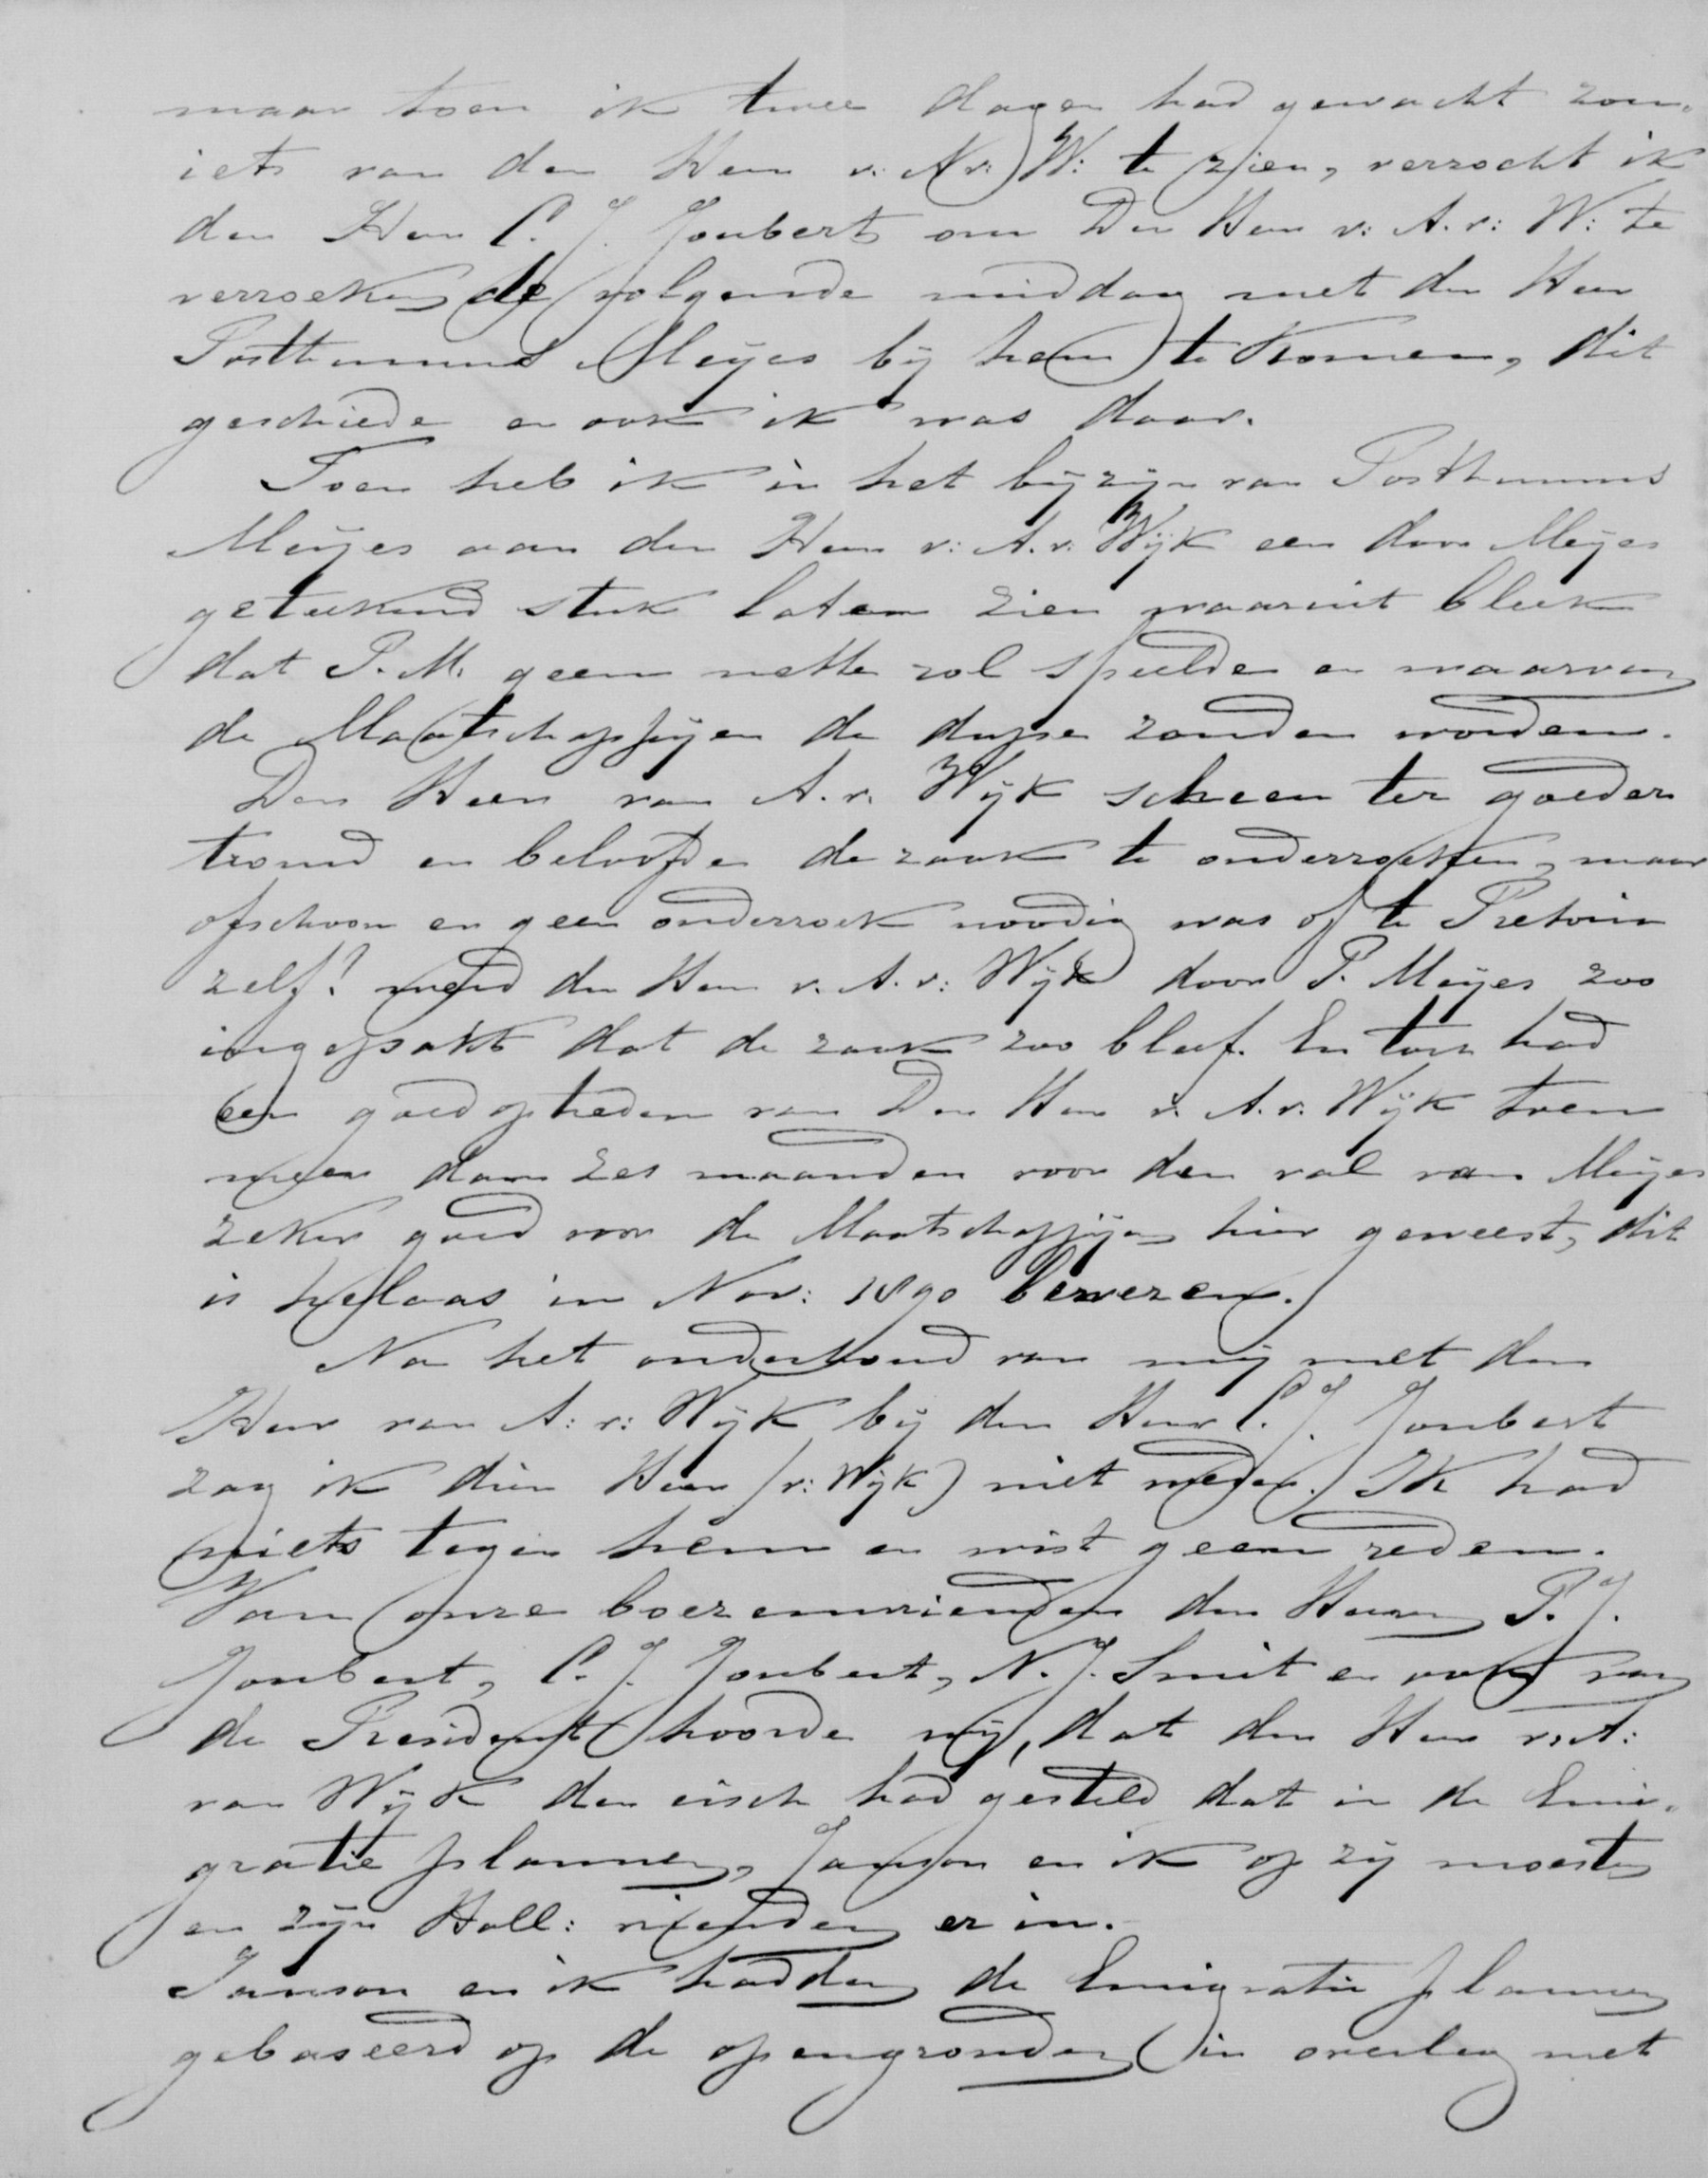 maar toen ik twee dagen had gewacht zon„
iets van den Heer v: A v: W: te zien, verzocht ik
den Heer C. J. Joubert om Den Heer v: A. v: W: te
verzoeken de volgende middag met den Heer
Posthumus Meijes bij hem te komen, dit
geschiede en ook ik was daar.
Toen heb ik in het bijzijn van Posthumus
Meijes aan den Heer v: A. v: Wijk een door Meijes
geteekend stuk laten zien waaruit bleek
dat P. M. geen nette rol speelde en waarvan
de Maatschappijen de dupe zouden worden.
Den Heer van A. v. Wijk scheen ter goeder
trouw en beloofde de zaak te onderzoeken, maar
ofschoon er geen onderzoek noodig was of te Pretoria
zelf! werd den Heer v. A. v: Wijk door P. Meijes zoo
ingepakt dat de zaak zoo bleef. En toen had
een goed optreden van Den Heer v. A. v. Wijk toen
meer dan zes maanden voor den val van Meijes
zeker goed voor de Maatschappijen hier geweest, dit
is helaas in Nov: 1890 bewezen.
Na het onderhoud van mij met den
Heer van A: v: Wijk bij den Heer C. J. Joubert
zag ik dien Heer (v: Wijk) niet meder. Ik had
niets tegen hem en wist geen reden.
Van onze boerenvrienden den Heeren P. J.
Joubert, C. J. Joubert, N. J. Smit en ook van
de President hoorde wij, dat den Heer v: A:
van Wijk den eisch had gesteld dat in de Emi„
gratie plannen, Janson en ik op zij moesten
en zijn Holl: vrienden er in.
Janson en ik hadden de Emigratie plannen
gebaseerd op de opengronden in overleg met